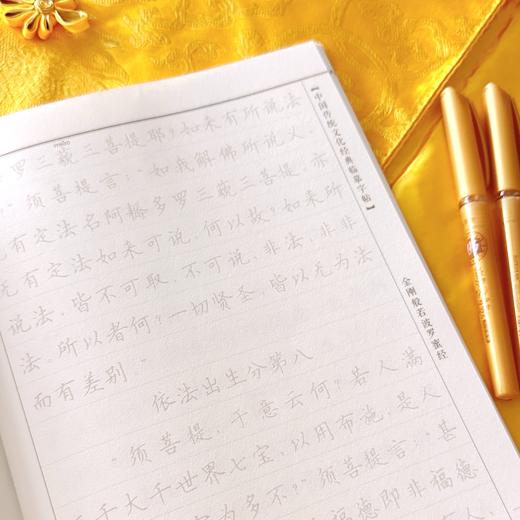 罗三藐三菩提耶？如来有所说法
须菩提言：“如我解佛所说义，
有定法名阿耨多罗三藐三菩提，亦
无有定法如来可说。何以故？如来所
说法，皆不可取、不可说、非法、非非
法。所以者何？一切贤圣，皆以无为法
而有差别。”
依法出生分第八
“须菩提，于意云何？若人满
三千大千世界七宝，以用布施，是人
为多不？”须菩提言：“甚
福德即非福德
【中国传统文化经典临摹字帖】
金刚般若波罗蜜经